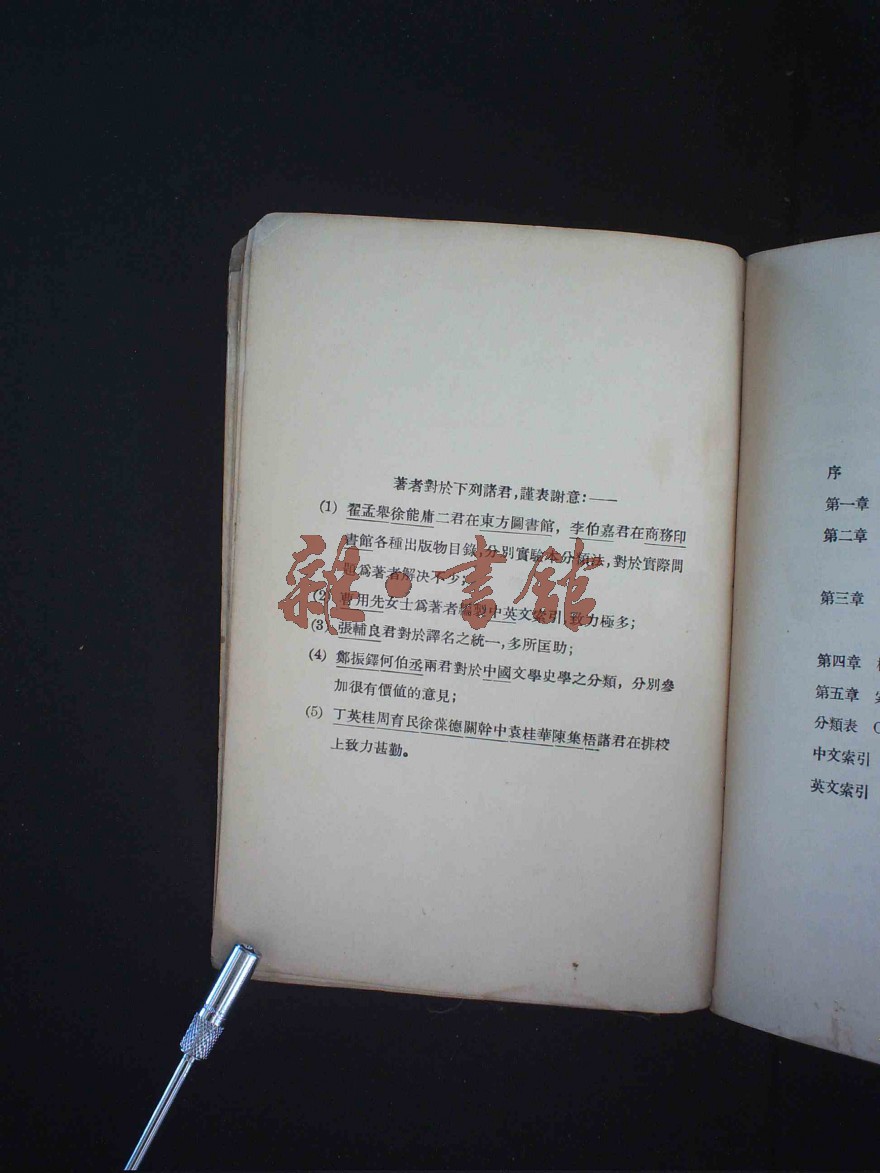 著者對於下列諸君，謹表謝意：——
(1) 翟孟舉徐能庸二君在東方圖書館，李伯嘉君在商務印
書館各種出版物目錄，分別實驗本分類法，對於實際問
題爲著者解決不少；
(2) 用先女士爲著者編製中英文索引，致力極多；
(3) 張輔良君對於譯名之統一，多所匡助；
(4) 鄭振鐸何伯丞兩君對於中國文學史學之分類，分別參
加很有價値的意見；
(5) 丁英桂周育民徐葆德關幹中袁桂華陳集梧諸君在排校
上致力甚勤。
雜·書館
序
第一章
第二章
第三章
第四章
第五章
分類表
中文索引
英文索引